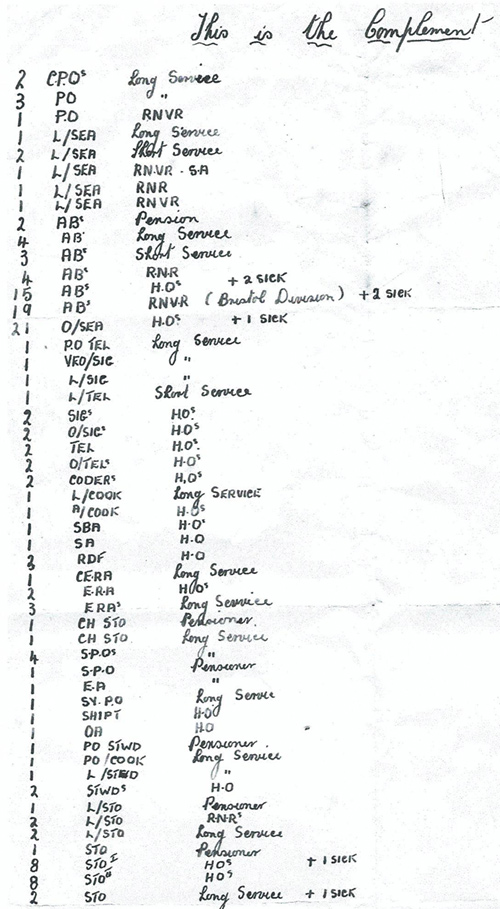 This is the Complement
2 CPOs Long Service
3 PO "
1 P.O RNVR
1 L/SEA Long Service
2 L/SEA Short Service
1 L/SEA RNVR - SA
1 L/SEA RNR
1 L/SEA RNVR
2 ABs Pension
4 AB Long Service
3 ABs Short Service
4 ABs RNR
15 ABs H.Os + 2 SICK
19 ABs RNVR (Bristol Division) + 2 SICK
21 O/SEA H.Os + 1 SICK
1 P.O TEL Long Service
1 YEO/SIG "
1 L/SIG "
1 L/TEL Short Service
2 SIGs HOs.
2 O/SIGs H.Os
2 TEL H.Os.
2 O/TELs H.Os
2 CODERs H.Os
1 L/COOK Long SERVICE
1 A/COOK H.Os
1 SBA H.Os
1 SA H.O
2 RDF H.O
1 CERA Long Service
2 E.R.A HOs
3 ERAs Long Service
1 CH STO Pensioner.
1 CH STO. Long Service
4 S.P.Os "
1 S.P.O Pensioner
1 E.A "
1 SY. P.O Long Service
1 SHIPT H.O
1 OA H.O
1 PO STWD Pensioner.
1 PO/COOK Long Service
1 L/STWD "
2 STWDs H.O
1 L/STO Pensioner
2 L/STO R.N.Rs
2 L/STO Long Service
1 STO Pensioner
8 STO I HOs + 1 SICK
8 STO II HOs
2 STO Long Service + 1 SICK